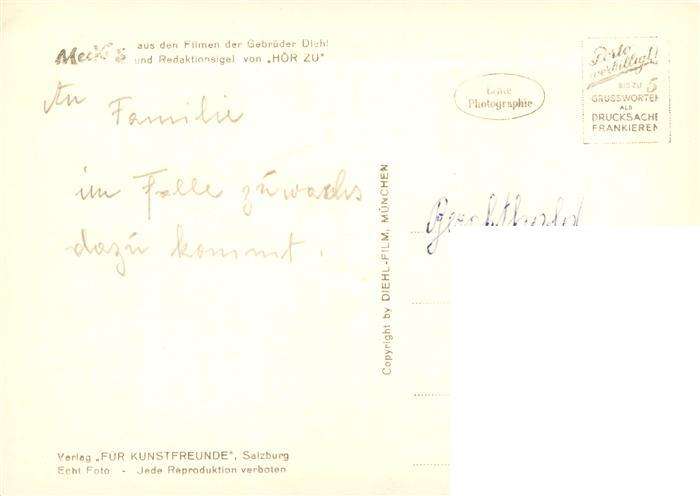 Mecki aus den Filmen der Gebrüder Diehl
und Redaktionsigel von „HÖR ZU"
Echte
Photographie
Porto
verbilligt!
BIS ZU 5
GRUSSWORTEN
ALS
DRUCKSACHE
FRANKIEREN
An Familie
im Falle zuwachs
dazu kommt.
Copyright by DIEHL-FILM, MÜNCHEN
Verlag „FÜR KUNSTFREUNDE", Salzburg
Echt Foto - Jede Reproduktion verboten